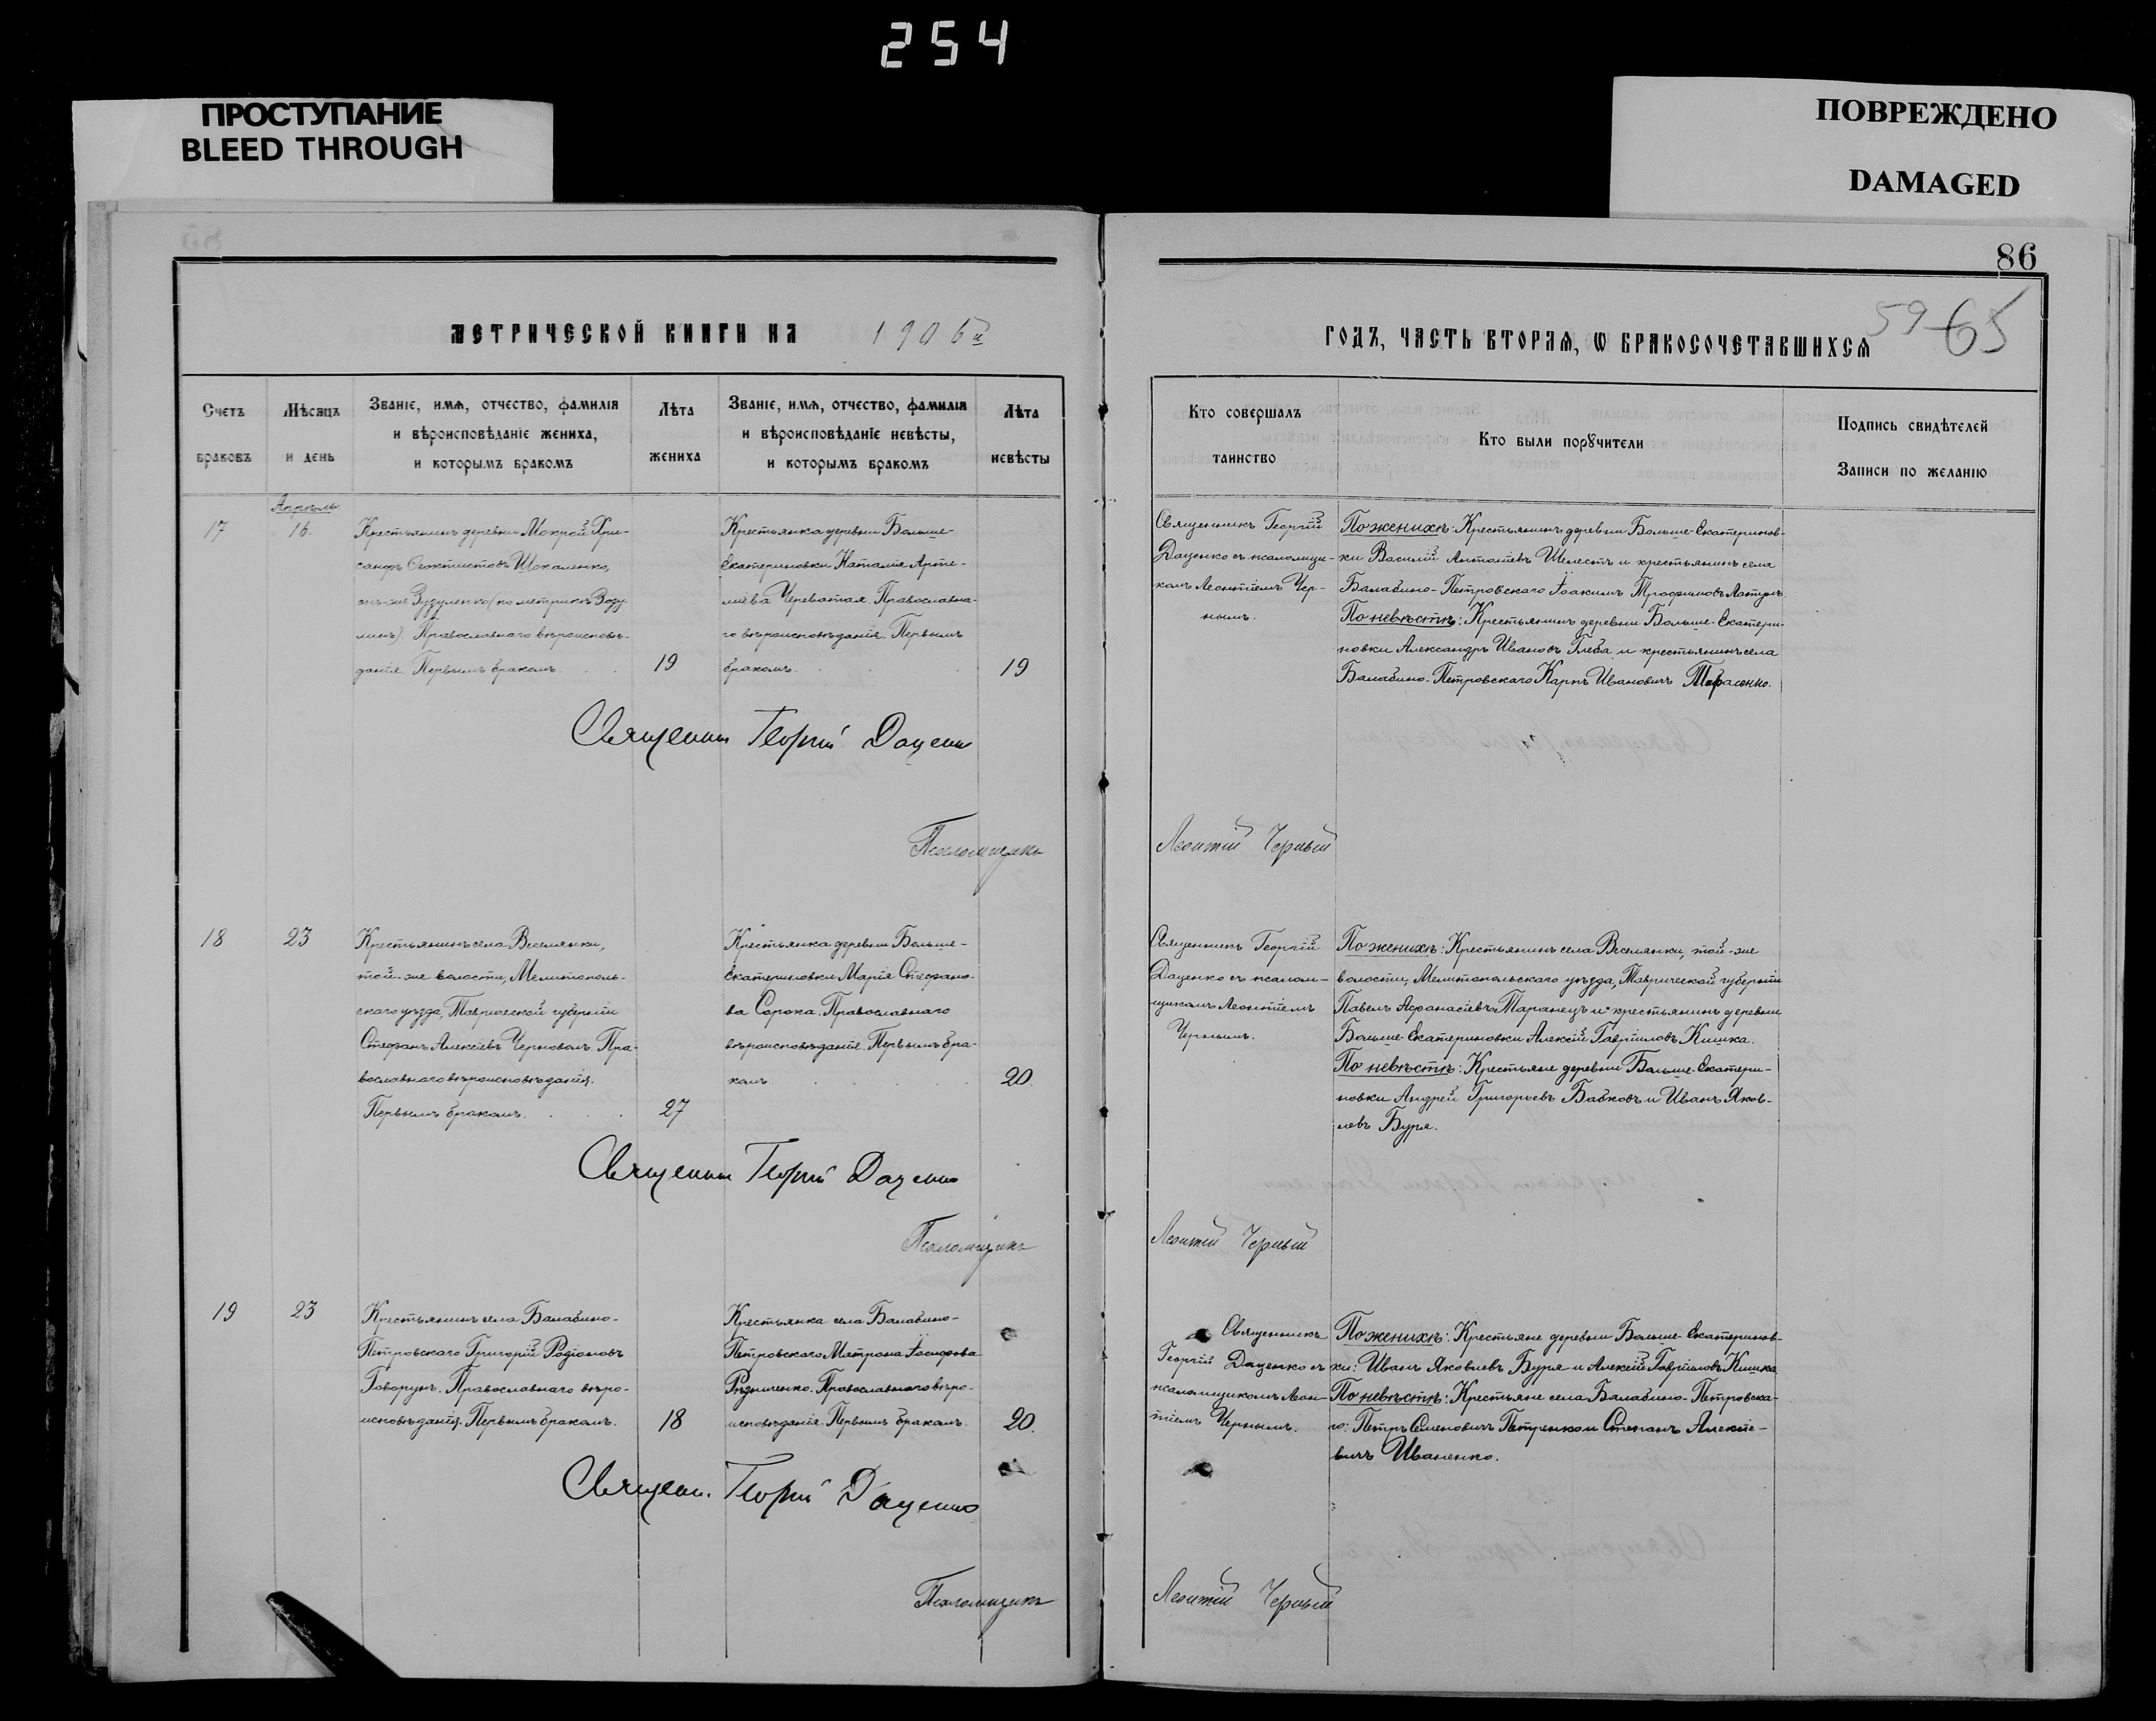 254
ПРОСТУПАНИЕ
BLEED THROUGH
ПОВРЕЖДЕНО
DAMAGED
86
59 65
МЕТРИЧЕСКОЙ КНИГИ НА 1906й
ГОДЪ, ЧАСТЬ ВТОРАЯ, Ѡ БРАКОСОЧЕТАВШИХСЯ
Счетъ
браковъ
Мѣсяцъ
и день
Званіе, имя, отчество, фамилія
и вѣроисповѣданіе жениха,
и которымъ бракомъ
Лѣта
жениха
Званіе, имя, отчество, фамилія
и вѣроисповѣданіе невѣсты,
и которымъ бракомъ
Лѣта
невѣсты
Кто совершалъ
таинство
Кто были порꙋчители
Подпись свидѣтелей
Записи по желанію
17
Апрѣль
16.
Крестьянинъ деревни Мокрой Хри-
санфъ Ѳеоктистовъ Шокаленко,
онъ-же Зузуленко (по метрикѣ
Православнаго вѣроисповѣ-
данія. Первымъ бракомъ.
19
Крестьянка деревни Больше-
Екатериновки Наталія Арте-
міева Череватая. Православна-
го вѣроисповѣданія. Первымъ
бракомъ.
19
Священникъ Георгій
Даценко съ псаломщи-
комъ Леонтіемъ Чер-
нымъ.
По женихѣ: Крестьянинъ деревни Больше-Екатеринов-
ки Василій Антоніевъ Шелестъ и крестьянинъ села
Балабино-Петровскаго Іоакимъ Трофимовъ
По невѣстѣ: Крестьянинъ деревни Больше-Екатери-
новки Александръ Ивановъ Глеба и крестьянинъ села
Балабино-Петровскаго Карпъ Ивановичъ Тарасенко.
Священникъ Георгій Даценко
Псаломщикъ
Леонтій Черный
18
23
Крестьянинъ села Веселянки,
той-же волости, Мелитополь-
скаго уѣзда, Таврической губерніи
Стефанъ Алексіевъ Черноволъ. Пра-
вославнаго вѣроисповѣданія.
Первымъ бракомъ.
27
Крестьянка деревни Больше-
Екатериновки Марія Стефано-
ва Сорока. Православнаго
вѣроисповѣданія. Первымъ бра-
комъ
20.
Священникъ Георгій
Даценко съ псалом-
щикомъ Леонтіемъ
Чернымъ.
По женихѣ: Крестьянинъ села Веселянки, той-же
волости, Мелитопольскаго уѣзда, Таврической губерніи
Павелъ Афанасіевъ Таранецъ и крестьянинъ деревни
Больше-Екатериновки Алексій Гавріиловъ Кишка.
По невѣстѣ: Крестьяне деревни Больше-Екатери-
новки Андрей Григорьевъ Бабковъ и Иванъ Яков-
левъ Буря.
Священникъ Георгій Даценко
Псаломщикъ
Леонтій Черный
19
23
Крестьянинъ села Балабино-
Петровскаго Григорій Родіоновъ
Говорунъ. Православнаго вѣро-
исповѣданія. Первымъ бракомъ.
18
Крестьянка села Балабино-
Петровскаго Матрона Іосифова
Рѣзниченко. Православнаго вѣро-
исповѣданія. Первымъ бракомъ.
20.
Священникъ
Георгій Даценко съ
псаломщикомъ Леон-
тіемъ Чернымъ.
По женихѣ: Крестьяне деревни Больше-Екатеринов-
ки: Иванъ Яковлевъ Буря и Алексій Гавріиловъ Кишка
По невѣстѣ: Крестьяне села Балабино-Петровска-
го: Петръ Семеновичъ Петренко и Степанъ Алексіе-
вичъ Иваненко.
Священ. Георгій Даценко
Псаломщикъ
Леонтій Черный